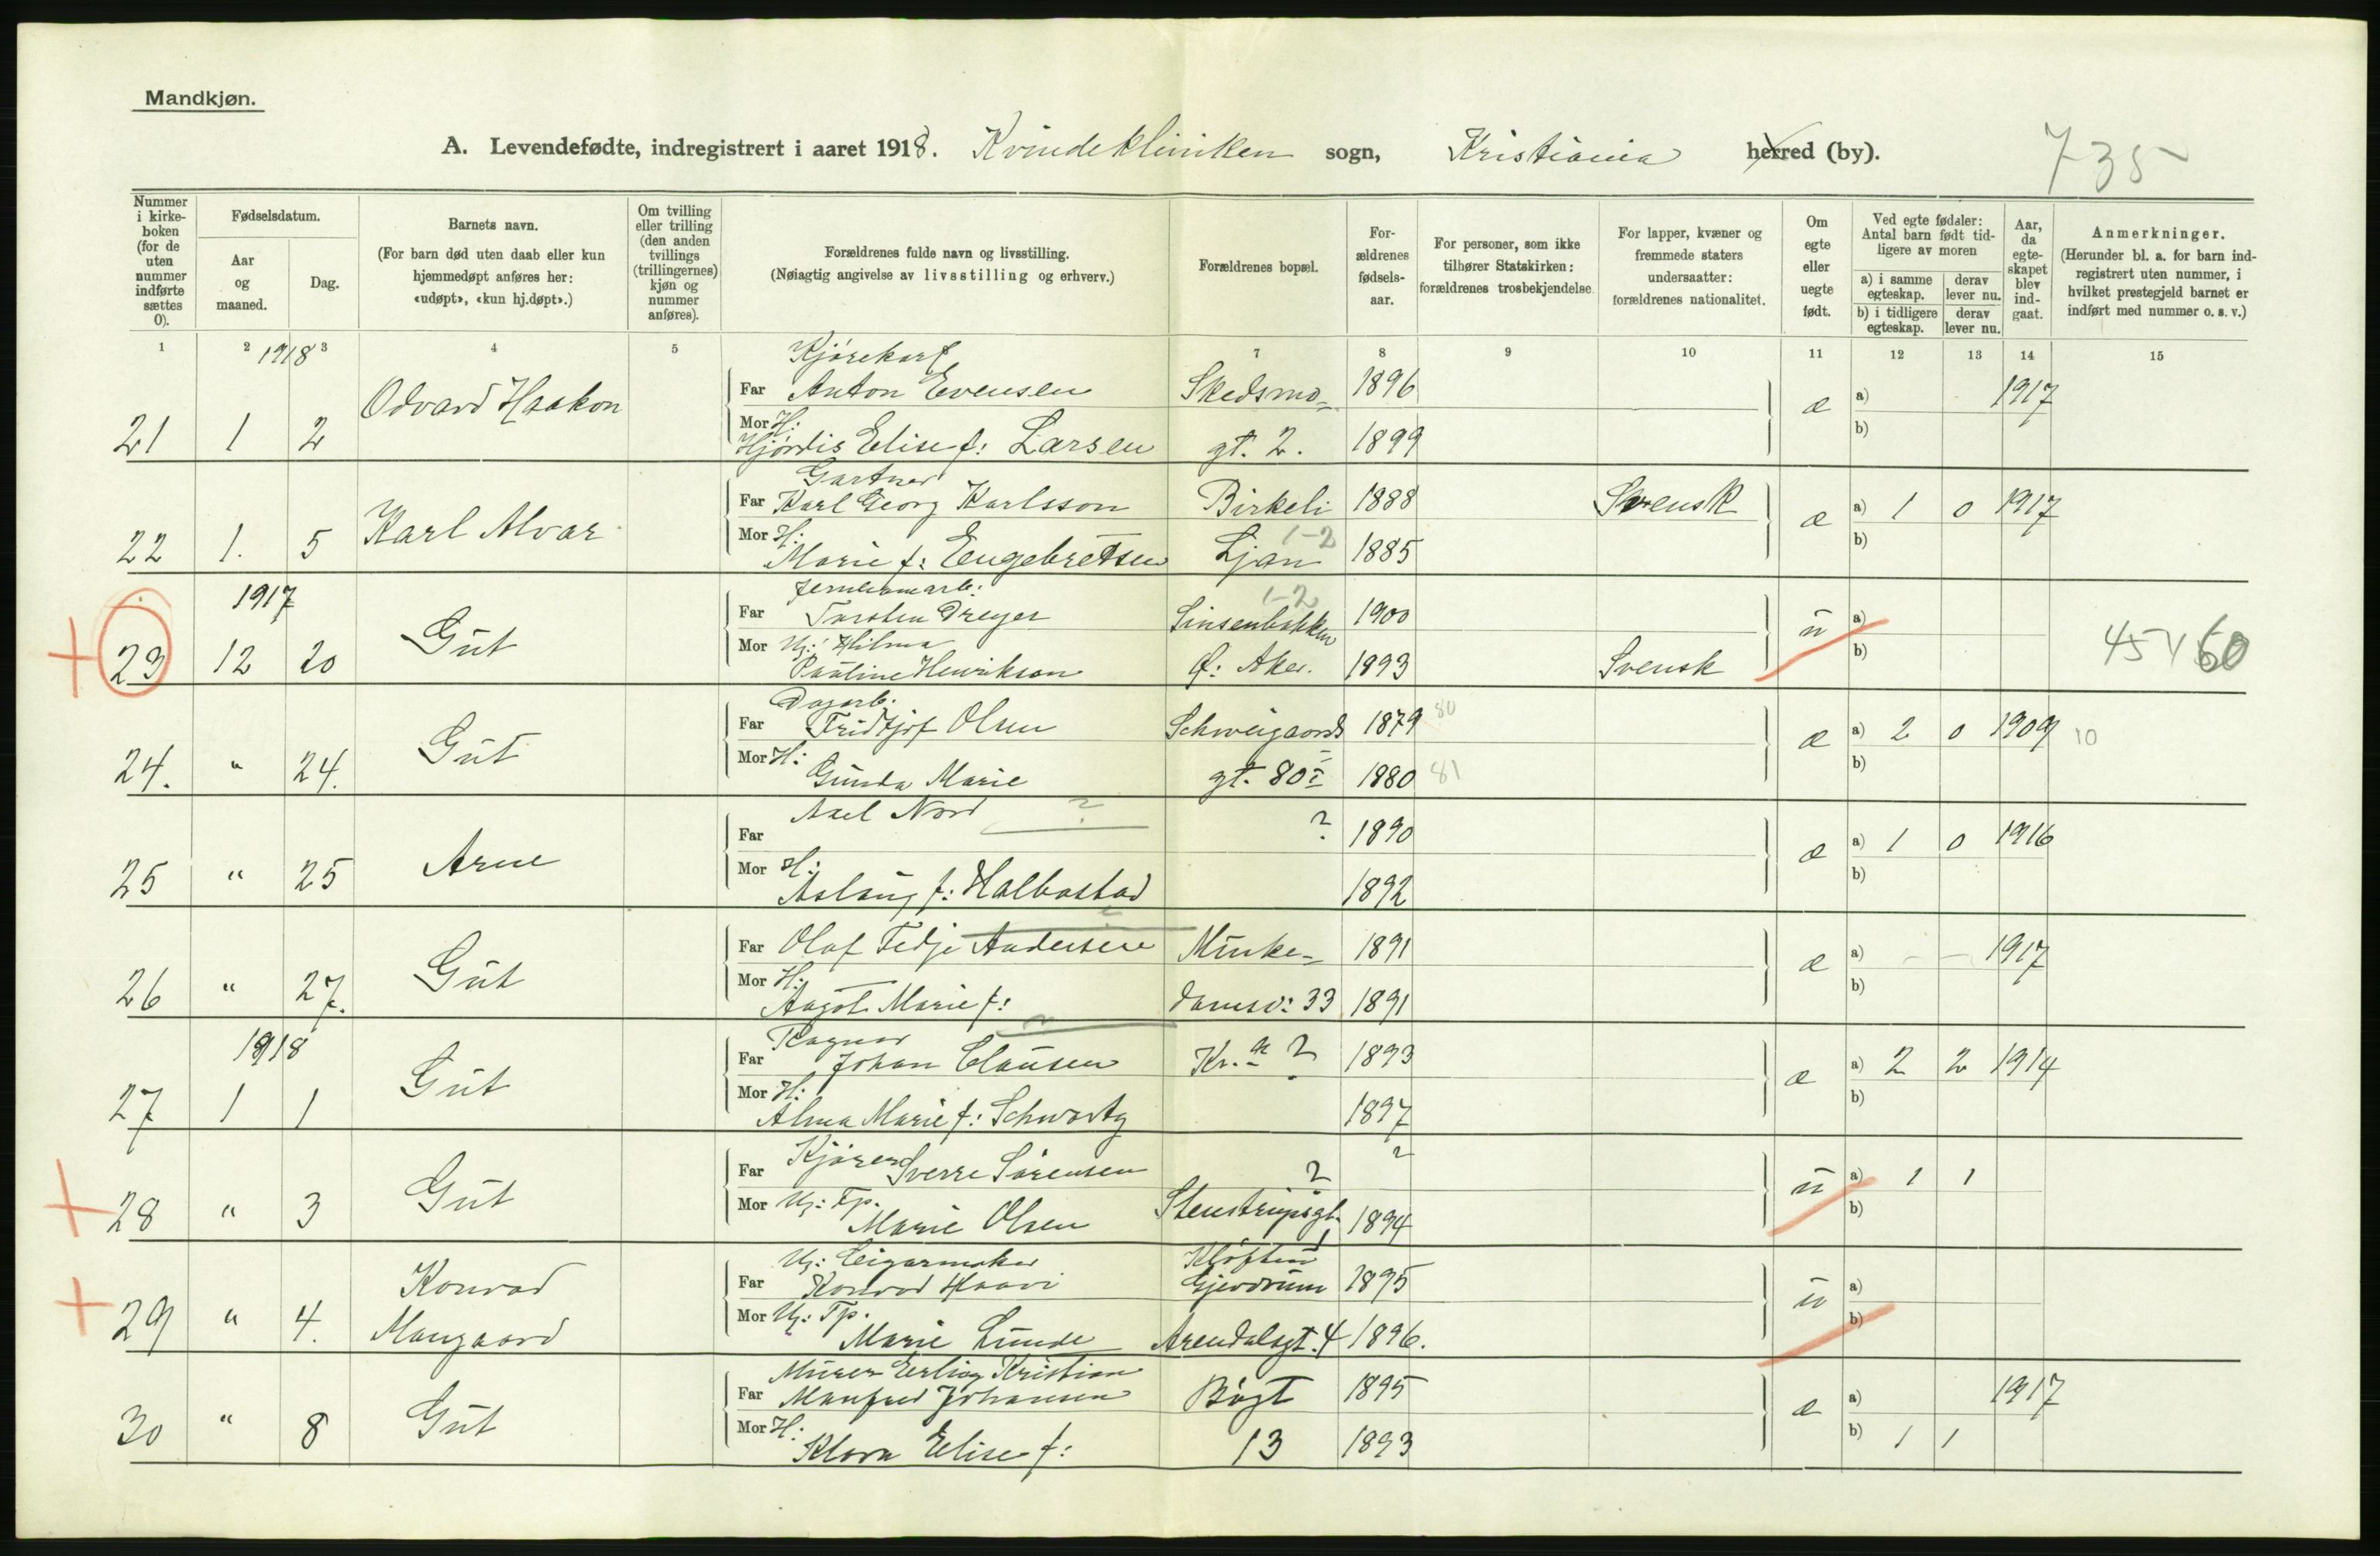 Mandkjøn.
A. Levendefødte, indregistrert i aaret 1918. Kvindekliniken sogn, Kristiania herred (by). 735
Nummer i kirke-boken (for de uten nummer indførte sættes 0).
Fødselsdatum.
Aar og maaned.
Dag.
Barnets navn.
(For barn død uten daab eller kun hjemmedøpt anføres her: «udøpt», «kun hj.døpt».)
Om tvilling eller trilling (den anden tvillings (trillingernes) kjøn og nummer anføres).
Forældrenes fulde navn og livsstilling.
(Nøiagtig angivelse av livsstilling og erhverv.)
Forældrenes bopæl.
For-ældrenes fødsels-aar.
For personer, som ikke tilhører Statskirken: forældrenes trosbekjendelse.
For lapper, kvæner og fremmede staters undersaatter: forældrenes nationalitet.
Om egte eller uegte født.
Ved egte fødsler: Antal barn født tid-ligere av moren
a) i samme egteskap. derav lever nu.
b) i tidligere egteskap. derav lever nu.
Aar, da egte-skapet blev ind-gaat.
Anmerkninger.
(Herunder bl. a. for barn ind-registrert uten nummer, i hvilket prestegjeld barnet er indført med nummer o. s. v.)
1 2 3 4 5 7 8 9 10 11 12 13 14 15
1918
Kjørekarl
Odvard Haakon Far Anton Evensen Skedsmo- 1896 æ a) 1917
21 1 2 Mor H: Hjørdis Elise f: Larsen gt. 2. 1899 b)
Gartner
Karl Alvar Far Karl Georg Karlsson Birkeli 1888 Svensk æ a) 1 0 1917
22 1. 5 Mor H: Marie f: Engebretsen Ljan 1-2 1885 b)
1917
Far Torsten Dreyer Sinsenbakken 1-2 1900 u a)
23 12 20 Gut Mor Ug: Hilma Pauline Henrikson Ø: Aker. 1893 Svensk b) 45 60
Dagarb.
Gut Far Fridtjof Olsen Schweigaards 1879 80 æ a) 2 0 1909 10
24. " 24. Mor H: Gunda Marie gt. 80 I 1880 81 b)
Arne Far Axel Nord ? ? 1890 æ a) 1 0 1916
25 " 25 Mor H: Aslaug f: Halbostad 1892 b)
Gut Far Olaf Tedje Andersen Munke- 1891 æ a) - - 1917
26 " 27. Mor H: Aagot Marie f: damsv: 33 1891 b)
1918
Ragnar
Gut Far Johan Clausen Kr.a ? 1893 æ a) 2 2 1914
27 1 1 Mor H: Alma Marie f: Schwartz 1897 b)
Gut Far Kjører Sverre Sørensen ? ? u a) 1 1
28 " 3 Mor Ug: Tp. Marie Olsen Stenstrupsgt. 1894 b)
Ug: Cigarmaker Kløften
Konrad Far Konrad Haavi Gjerdrum 1895 u a)
29 " 4. Maugaard Mor Ug: Tp. Marie Lunde Arendalsgt. 4 1896. b)
Murer Erling Kristian
Gut Far Manfred Johansen Bøgt 1895 æ a) 1917
30 " 8 Mor H: Klara Elise f: 13 1893 b) 1 1